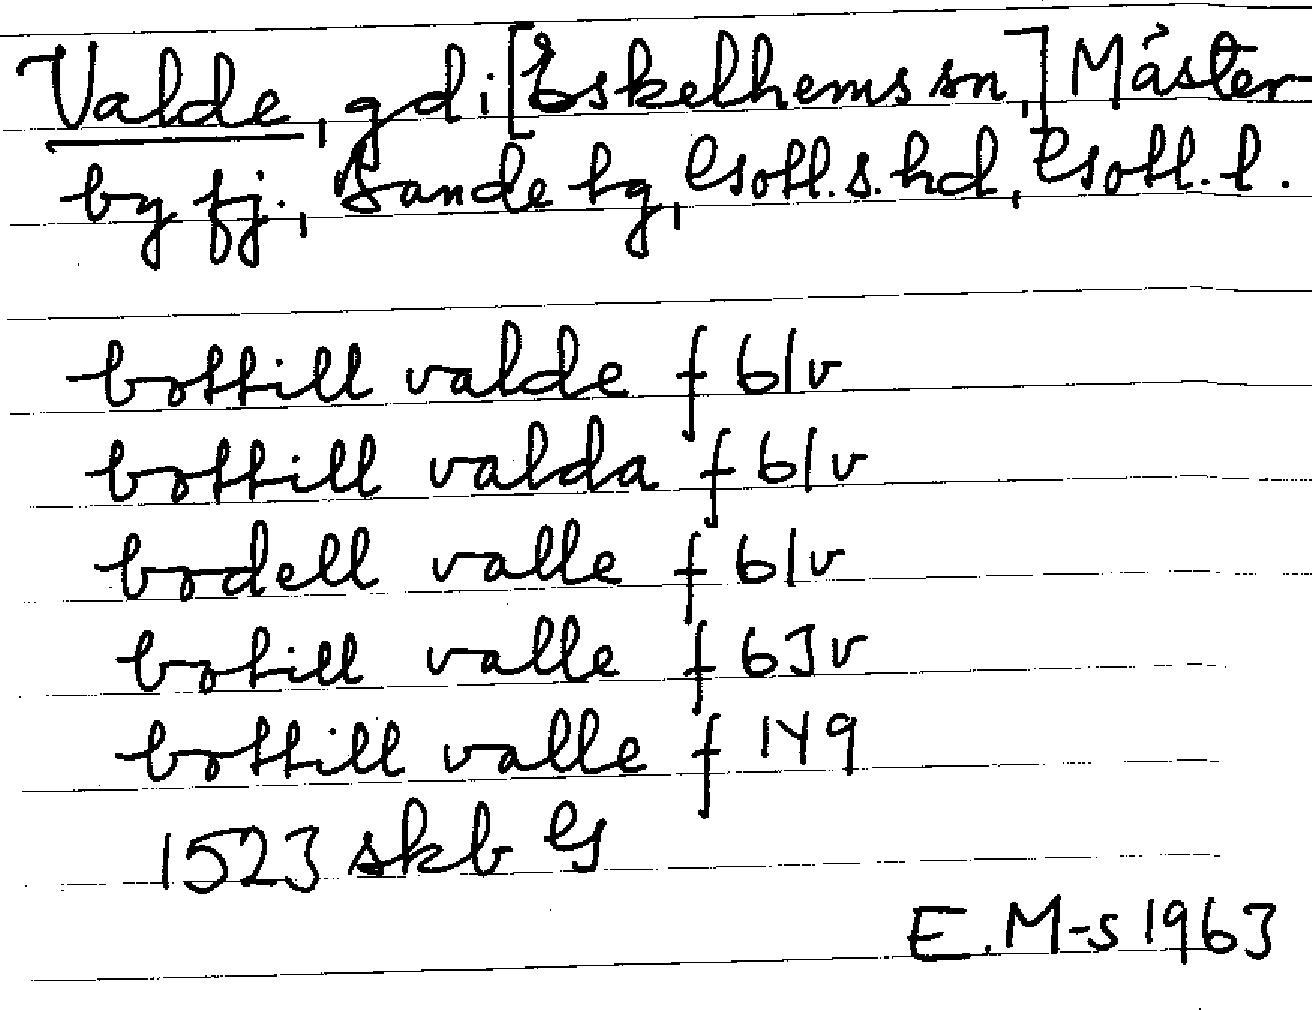 Valde, gd i [Eskelhems sn,] Mäster-
by fj., Sande tg, Gotl. s. hd, Gotl. l.
bottill valde f 61v
bottill valda f 61v
bodell valle f 61v
botill valle f 63v
bottill valle f 149
1523 skb G
E. M-s 1963